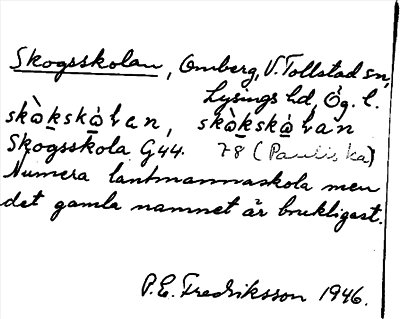 Skogsskolan, Omberg, V. Tollstad sn,
Lysings hd, Ög. l.
skòkskòlan, skòkskòlan
Skogsskola G44. 78 (Pauliska)
Numera lantmannaskola men
det gamla namnet är brukligast.
P. E. Fredriksson 1946.